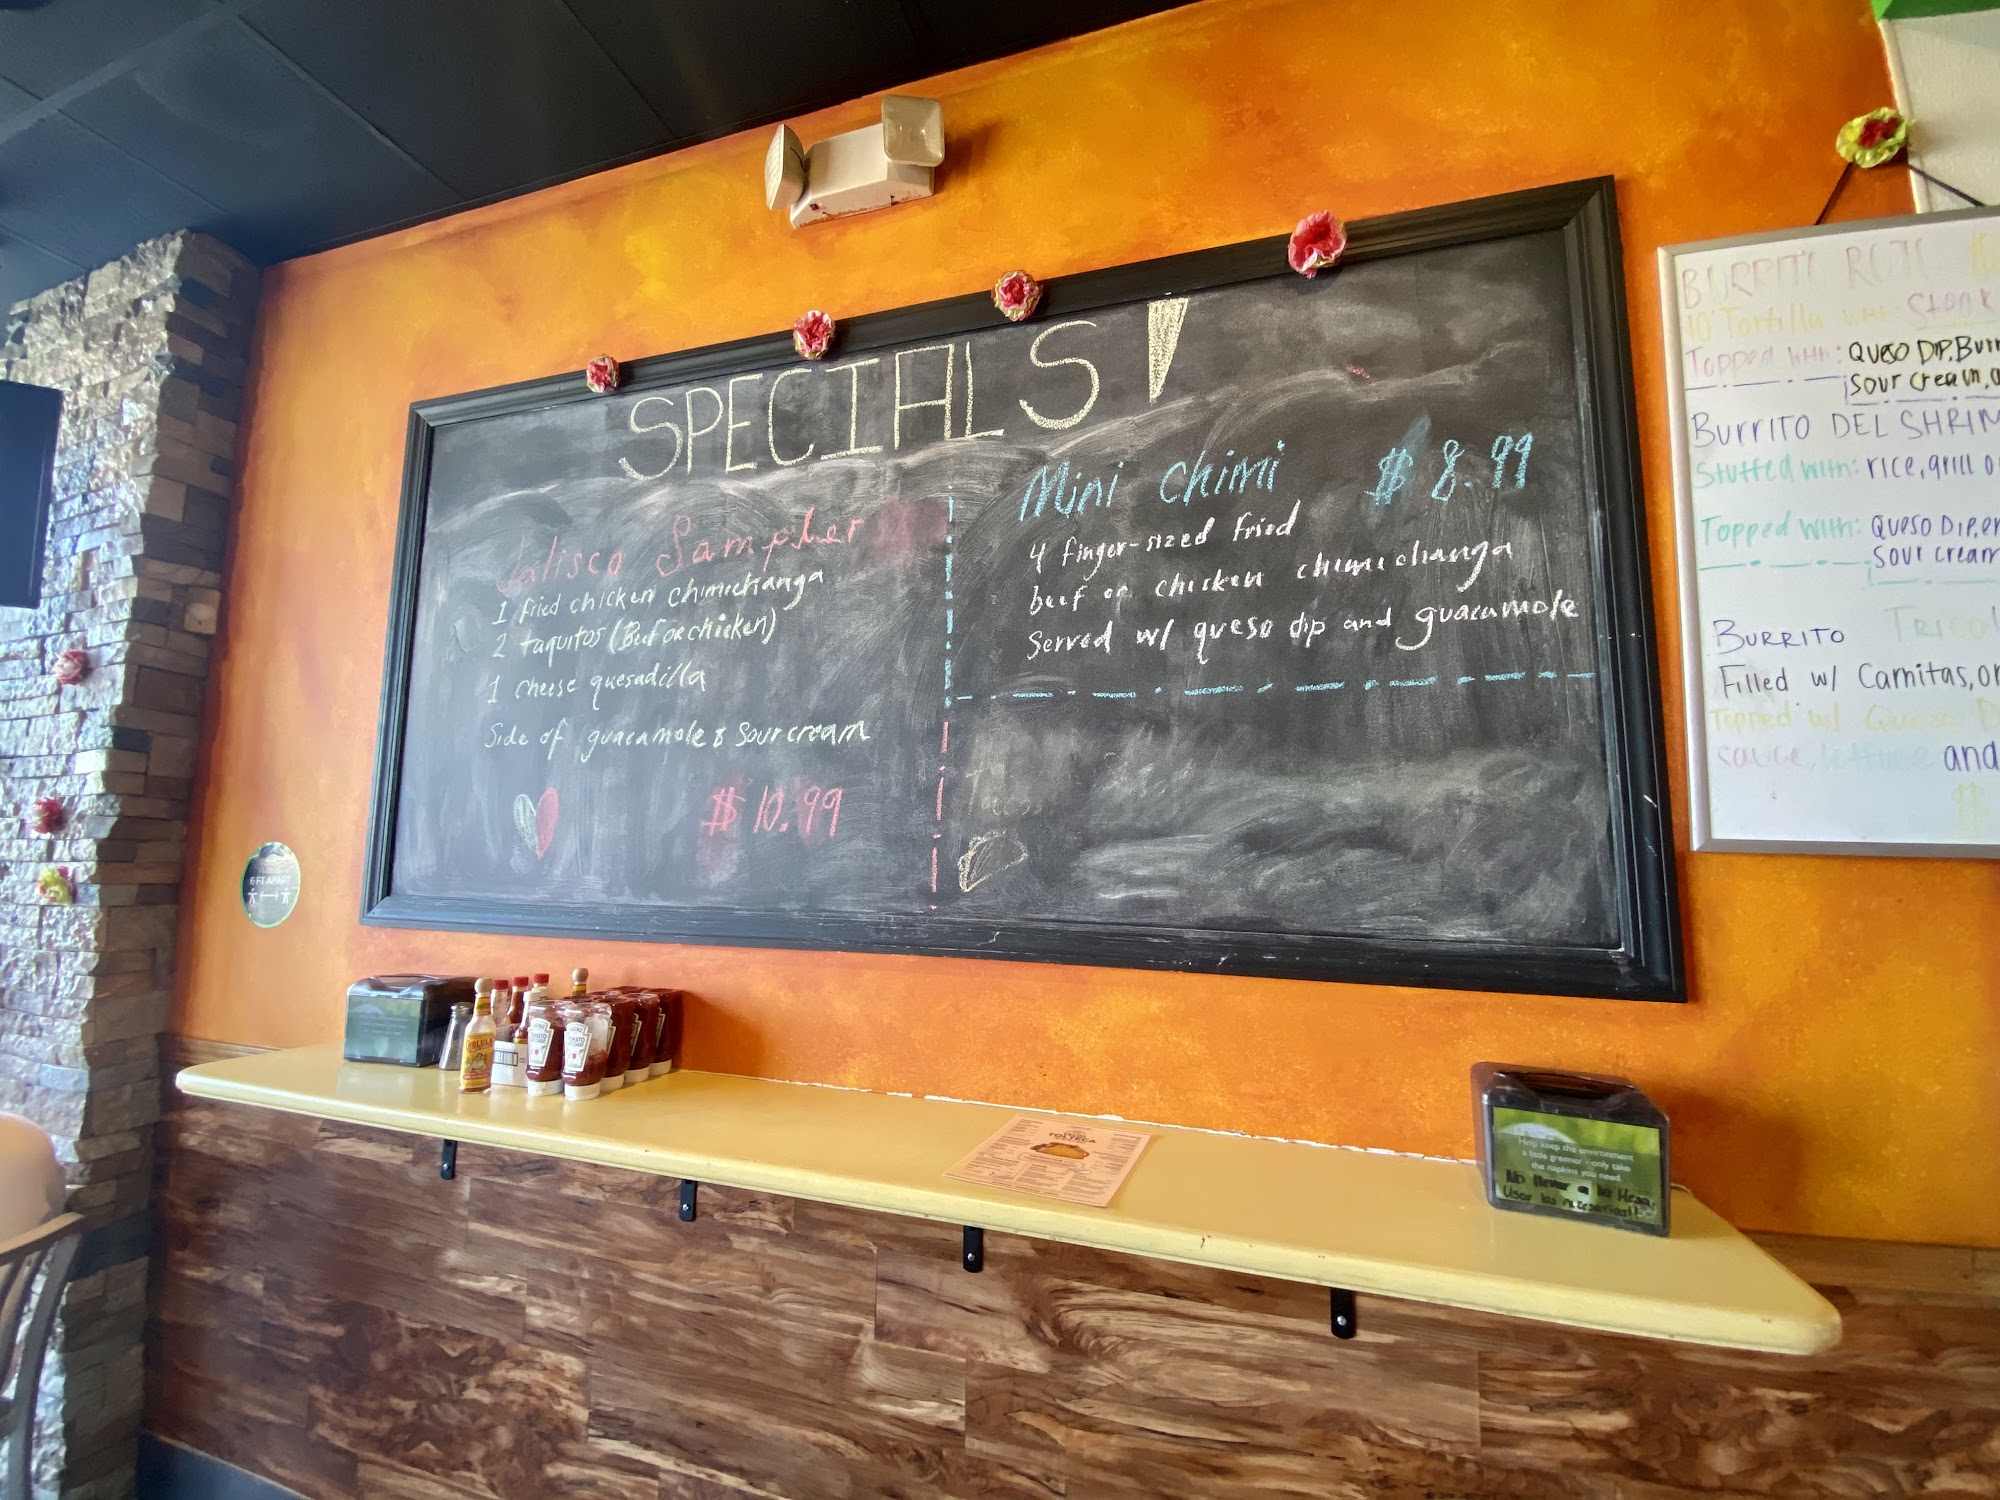 SPECIALS!
Jalisco Sampler
1 fried chicken chimichanga
2 taquitos (Beef or chicken)
1 cheese quesadilla
Side of guacamole & Sour cream
$10.99
Mini Chimi $8.99
4 finger-sized fried
beef or chicken chimichanga
Served w/ queso dip and guacamole
Tacos
BURRITO ROJO
10" Tortilla with: Steak
Topped with: QUESO DIP, Burr
Sour cream,
BURRITO DEL SHRIM
Stuffed with: rice, grill
Topped with: QUESO DIP, en
Sour cream
BURRITO
Filled w/ Carnitas, or
Topped w/ Queso D
sauce, lettuce and
$
6 FT APART
HEINZ
TOMATO
KETCHUP
HEINZ
TOMATO
KETCHUP
TOLTECA
Help keep the environment
a little greener - only take
the napkins you need.
No llevar a la Mesa
Usar las necesarias!!